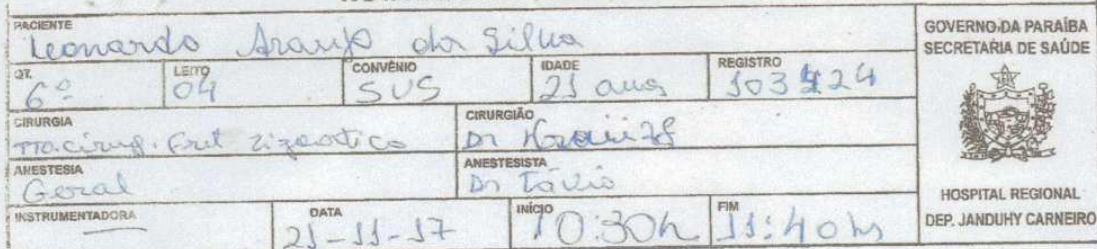 PACIENTE
Leonardo Araujo da Silva
QT. 6º LEITO 04 CONVÊNIO SUS IDADE 21 anos REGISTRO
CIRURGIA
CIRURGIÃO Dr
ANESTESIA Geral
ANESTESISTA Dr Távio
INSTRUMENTADORA DATA 21-11-17 INÍCIO 10:30h FIM 11:40hs
GOVERNO DA PARAÍBA
SECRETARIA DE SAÚDE
HOSPITAL REGIONAL
DEP. JANDUHY CARNEIRO